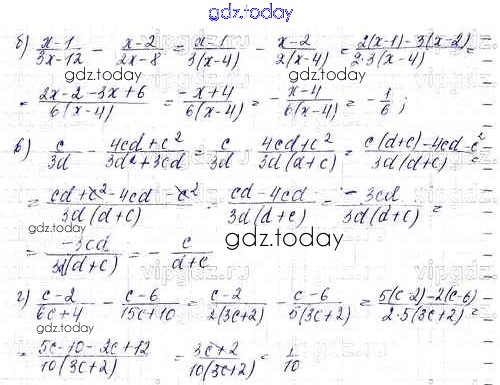 gdz.today
б) (x-1)/(3x-12) - (x-2)/(2x-8) = (x-1)/(3(x-4)) - (x-2)/(2(x-4)) = (2(x-1)-3(x-2))/(2·3(x-4)) =
gdz.today gdz.today
= (2x-2-3x+6)/(6(x-4)) = (-x+4)/(6(x-4)) = -(x-4)/(6(x-4)) = -1/6;
в) c/3d - (4cd+c²)/(3d²+3cd) = c/3d - (4cd+c²)/(3d(d+c)) = (c(d+c)-4cd-c²)/(3d(d+c)) =
gdz.today gdz.today
(cd+c²-4cd-c²)/(3d(d+c)) (cd-4cd)/(3d(d+c)) = (-3cd)/(3d(d+c)) =
gdz.today
= (-3cd)/(3d(d+c)) = -c/(d+c)
г) (c-2)/(6c+4) - (c-6)/(15c+10) = (c-2)/(2(3c+2)) - (c-6)/(5(3c+2)) = (5(c-2)-2(c-6))/(2·5(3c+2)) =
gdz.today gdz.today
= (5c-10-2c+12)/(10(3c+2)) = (3c+2)/(10(3c+2)) = 1/10